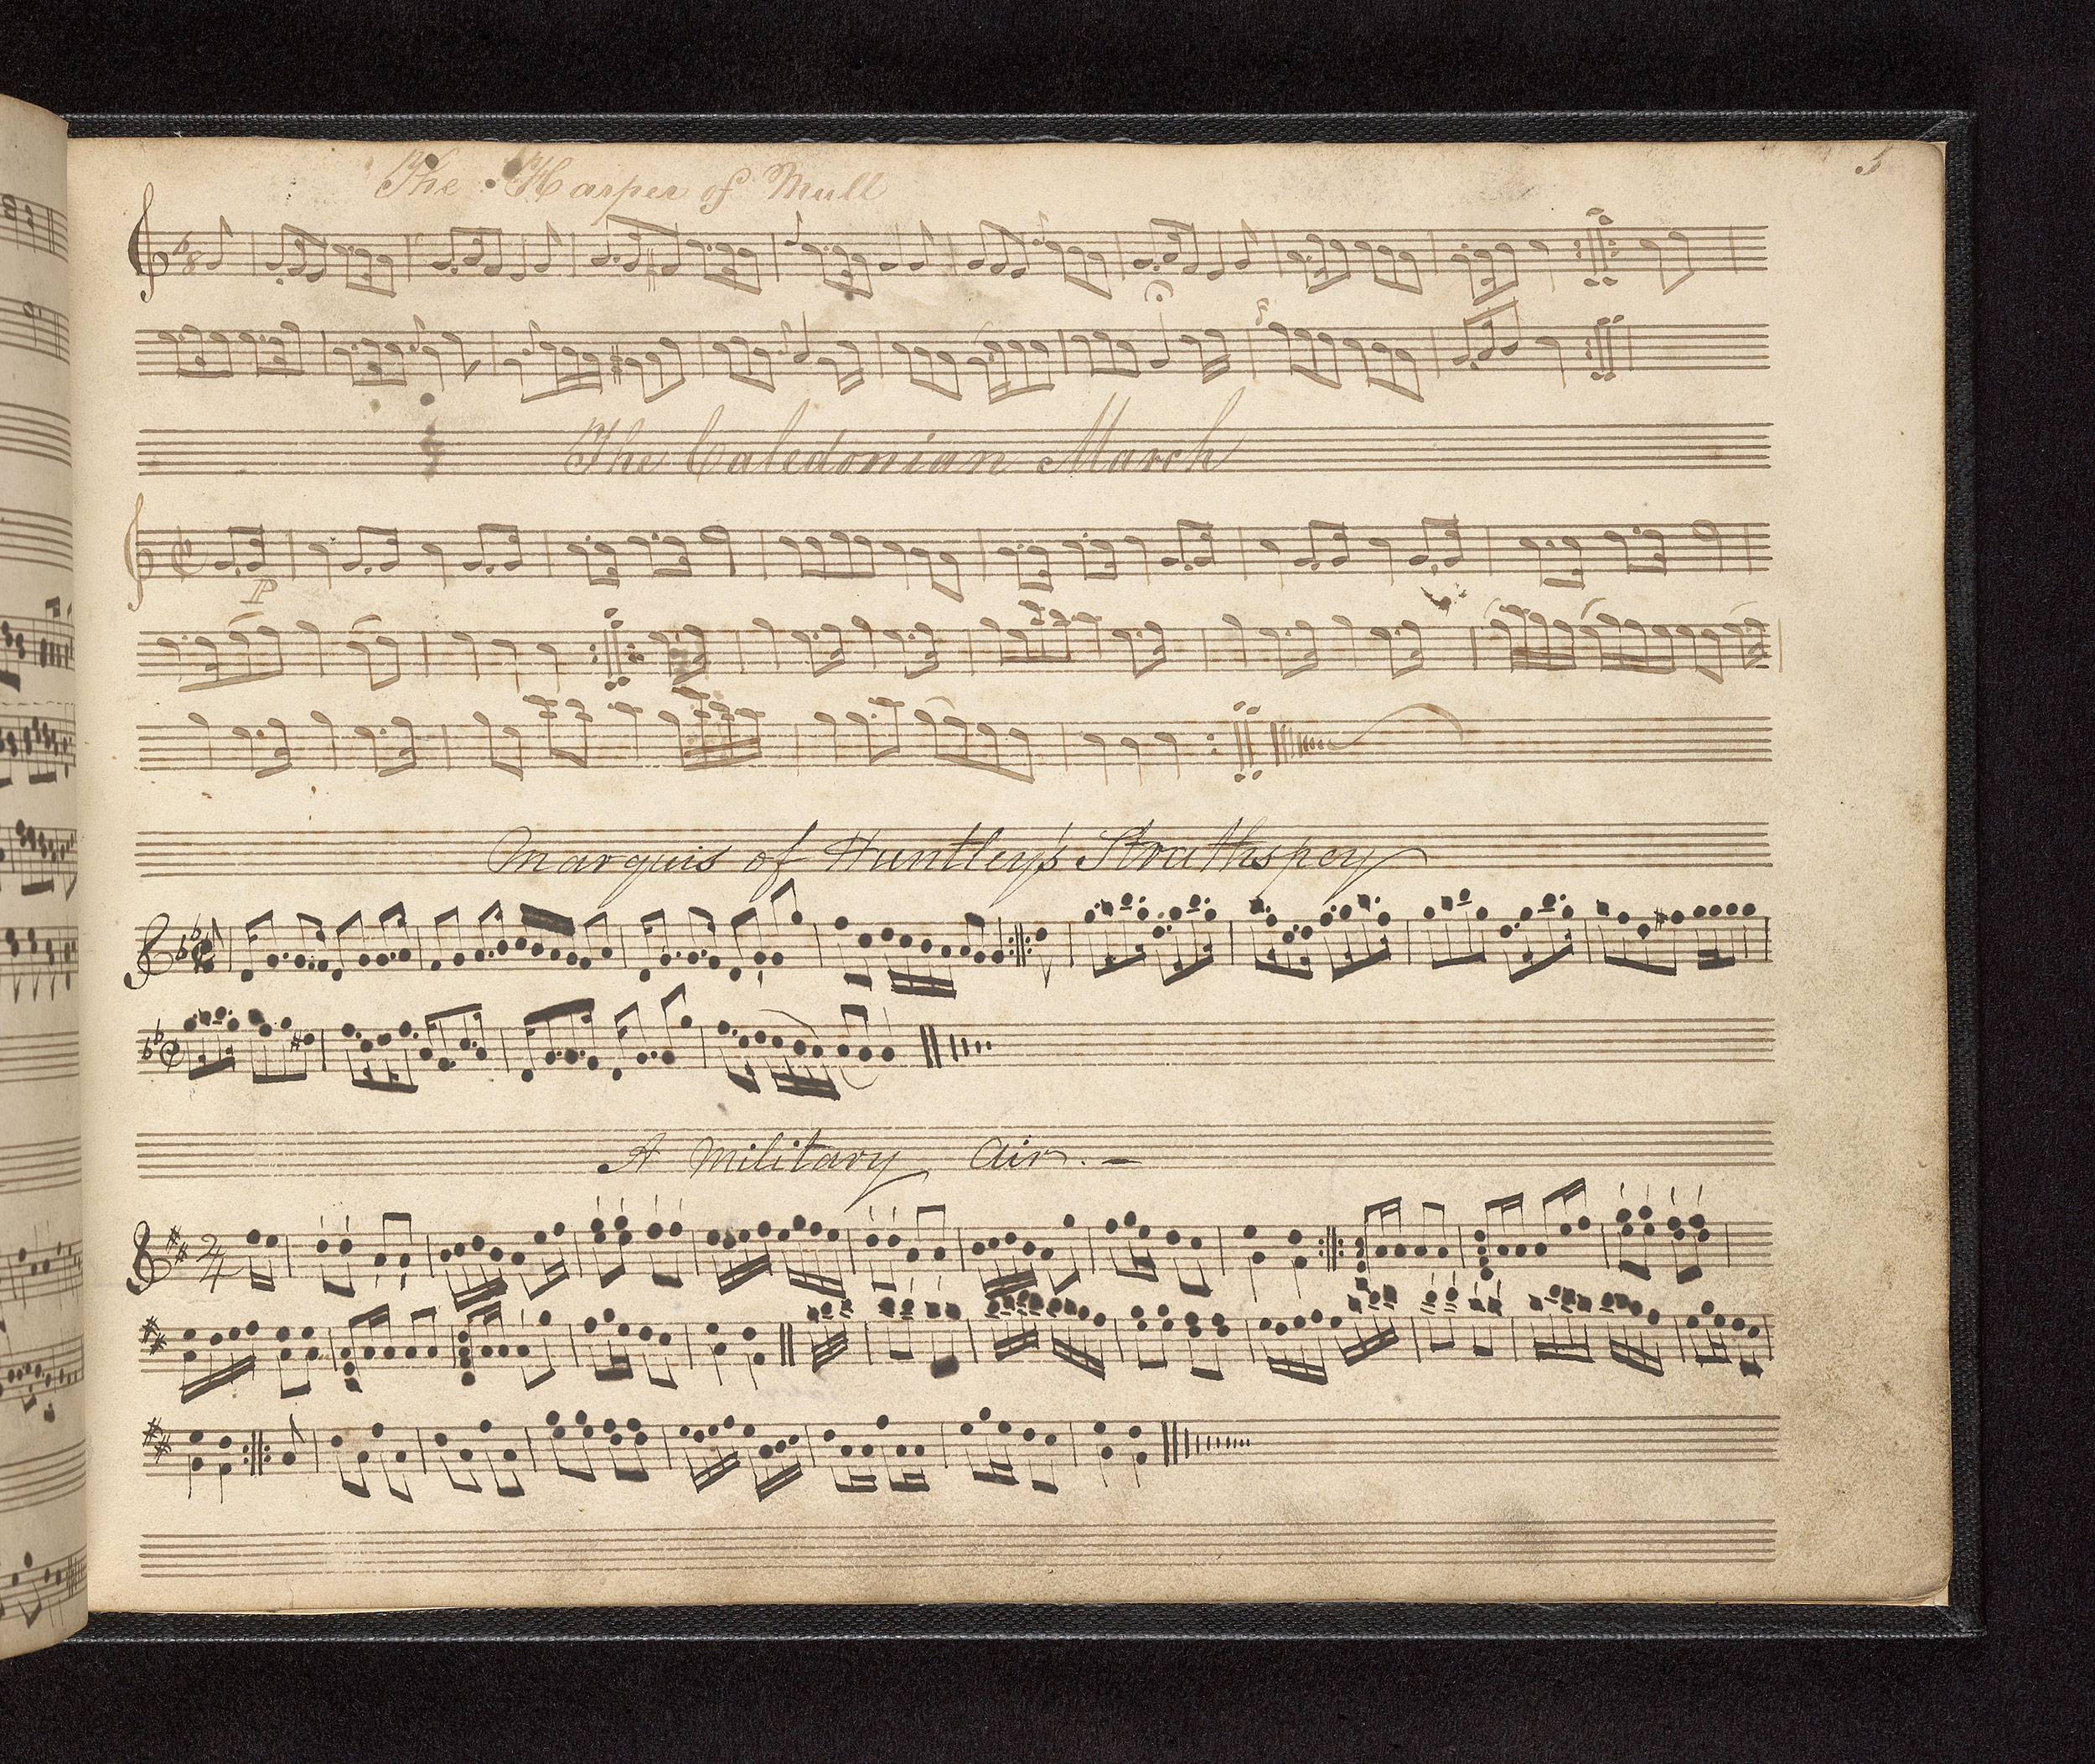 The Harper of Mull
The Caledonian March
P
Marquis of Huntley's Strathspey
A Military Air. —